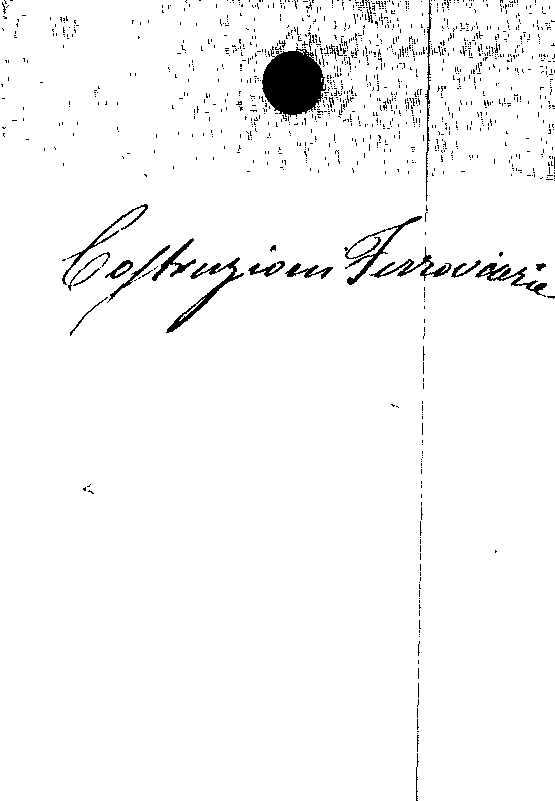 Costruzioni Ferroviarie